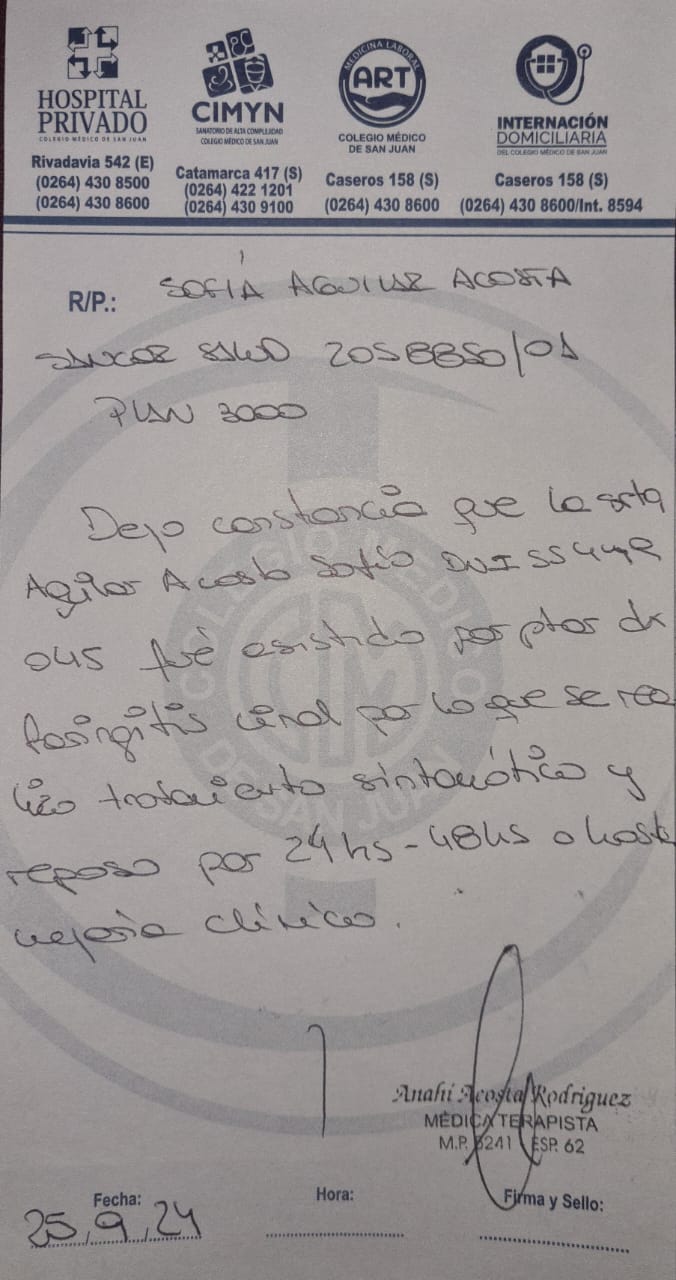 HOSPITAL
PRIVADO
COLEGIO MÉDICO DE SAN JUAN
Rivadavia 542 (E)
(0264) 430 8500
(0264) 430 8600
CIMYN
SANATORIO DE ALTA COMPLEJIDAD
COLEGIO MÉDICO DE SAN JUAN
Catamarca 417 (S)
(0264) 422 1201
(0264) 430 9100
MEDICINA LABORAL
ART
COLEGIO MÉDICO
DE SAN JUAN
Caseros 158 (S)
(0264) 430 8600
INTERNACIÓN
DOMICILIARIA
DEL COLEGIO MÉDICO DE SAN JUAN
Caseros 158 (S)
(0264) 430 8600/Int. 8594
R/P.: SOFÍA AGUILAR ACOSTA
SANCOR SALUD 2058850/01
PLAN 3000
Dejo constancia que la srta
Agilar Acosta Sofía DNI
045 fué asistida por ptar dx
Faringitis viral por lo que se rea
lizo tratamiento sintomático y
reposo por 24hs-48hs o hasta
mejoria clínica.
COLEGIO MEDICO
DE SAN JUAN
CM
Anahí Acosta Rodriguez
MÉDICA TERAPISTA
M.P. 3241 ESP. 62
Fecha: 25,9,24
Hora:
Firma y Sello: